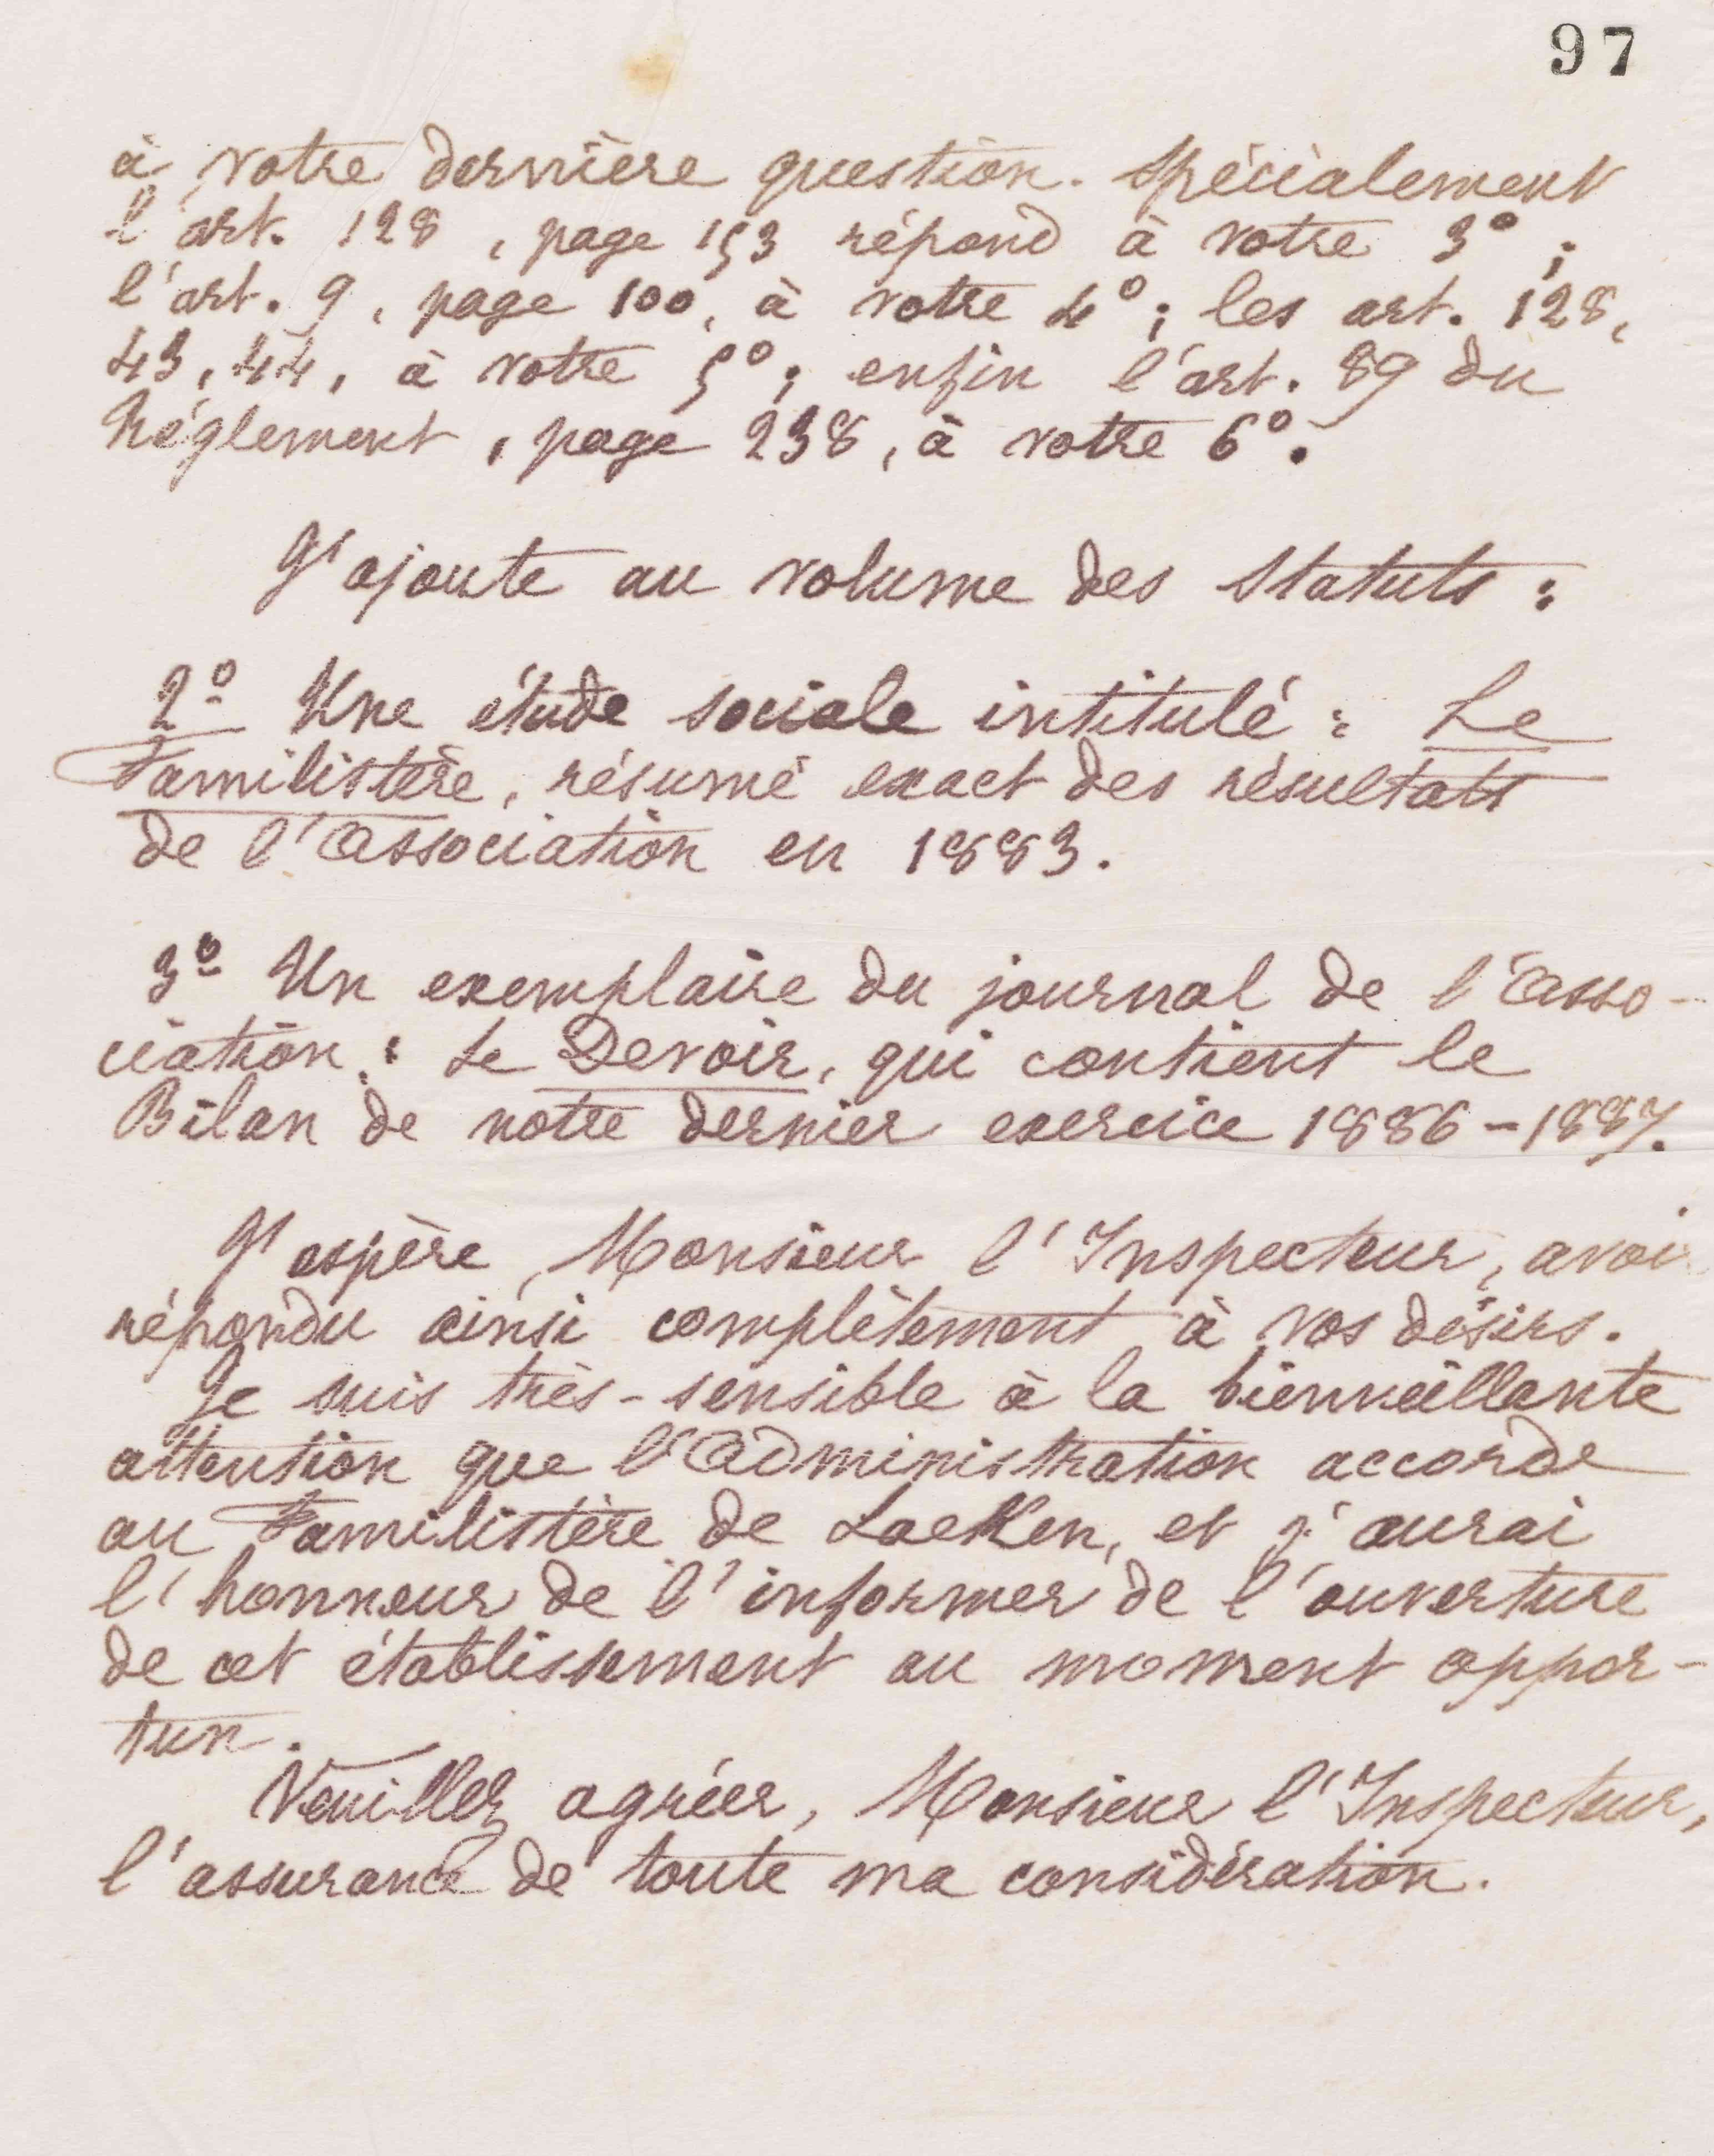 97
à votre dernière question. Spécialement
l'art. 128, page 153 répond à votre 3° ;
l'art. 9, page 100, à votre 4° ; les art. 128,
43, 44, à votre 5° ; enfin l'art. 89 du
Réglement, page 238, à votre 6°.
J'ajoute au volume des Statuts :
2° Une étude sociale intitulé : Le
Familistère, résumé exact des résultats
de l'Association en 1883.
3° Un exemplaire du journal de l'Asso-
ciation : Le Devoir, qui contient le
Bilan de notre dernier exercice 1886-1887.
J'espère, Monsieur l'Inspecteur, avoir
répondu ainsi complètement à vos désirs.
Je suis très-sensible à la bienveillante
attention que l'Administration accorde
au Familistère de Laeken, et j'aurai
l'honneur de l'informer de l'ouverture
de cet établissement au moment oppor-
tun.
Veuillez agréer, Monsieur l'Inspecteur,
l'assurance de toute ma considération.